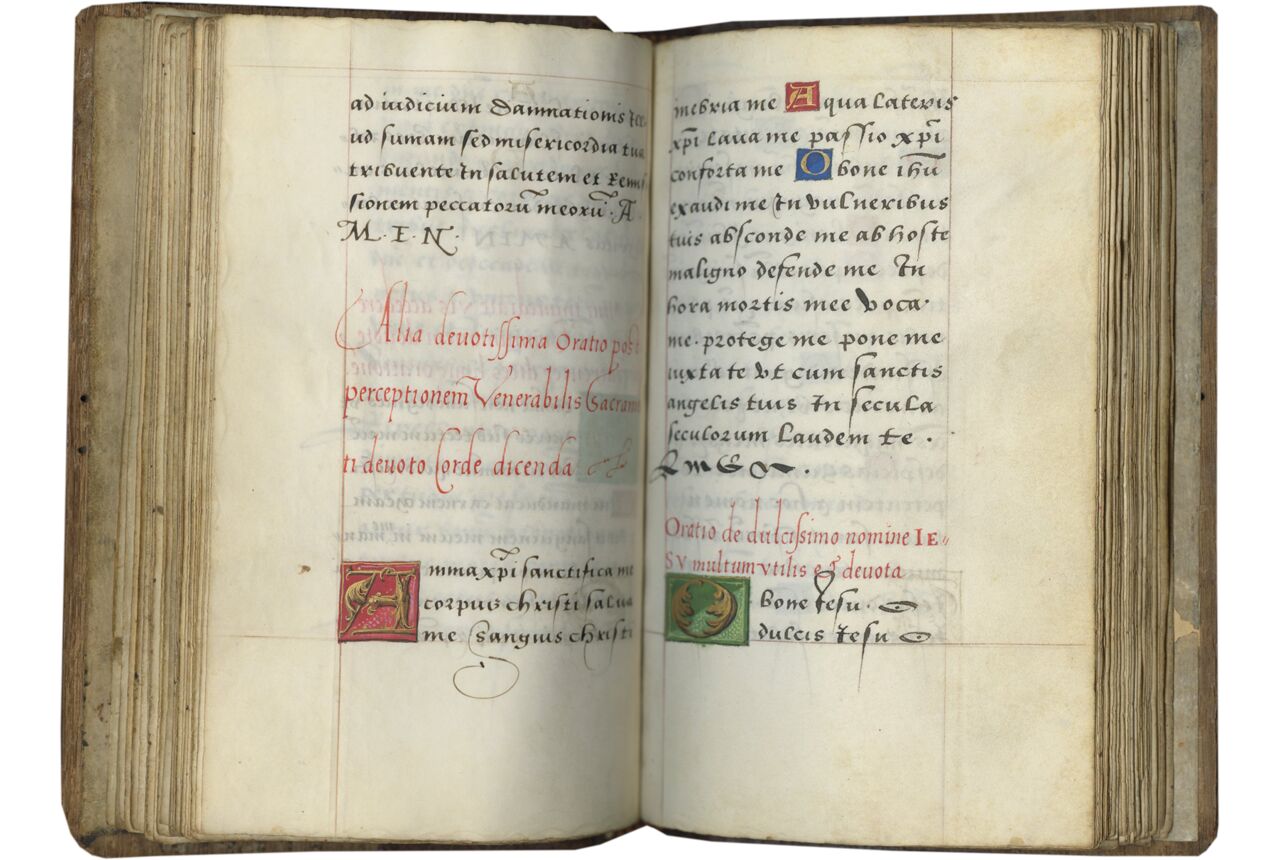 ad iudicium damnationis
ud sumam sed misericordia tua
tribuente In salutem et Remis
sionem peccatorū meorū · A
M · E · N ·
Alia deuotissima Oratio post
perceptionem Venerabilis Sacramē
ti deuoto Corde dicenda
Anima xp̄i sanctifica me
corpus christi salua
me Sanguis christi
inebria me Aqua Lateris
xp̄i Laua me passio xp̄i
conforta me O bone ihū
exaudi me In vulneribus
tuis absconde me ab hoste
maligno defende me In
hora mortis mee voca
me · protege me pone me
iuxta te vt cum sanctis
angelis tuis In secula
seculorum Laudem te ·
AMEN ·
Oratio de dulcissimo nomine IE-
SV multum vtilis et deuota
O bone Iesu · O
dulcis Iesu O